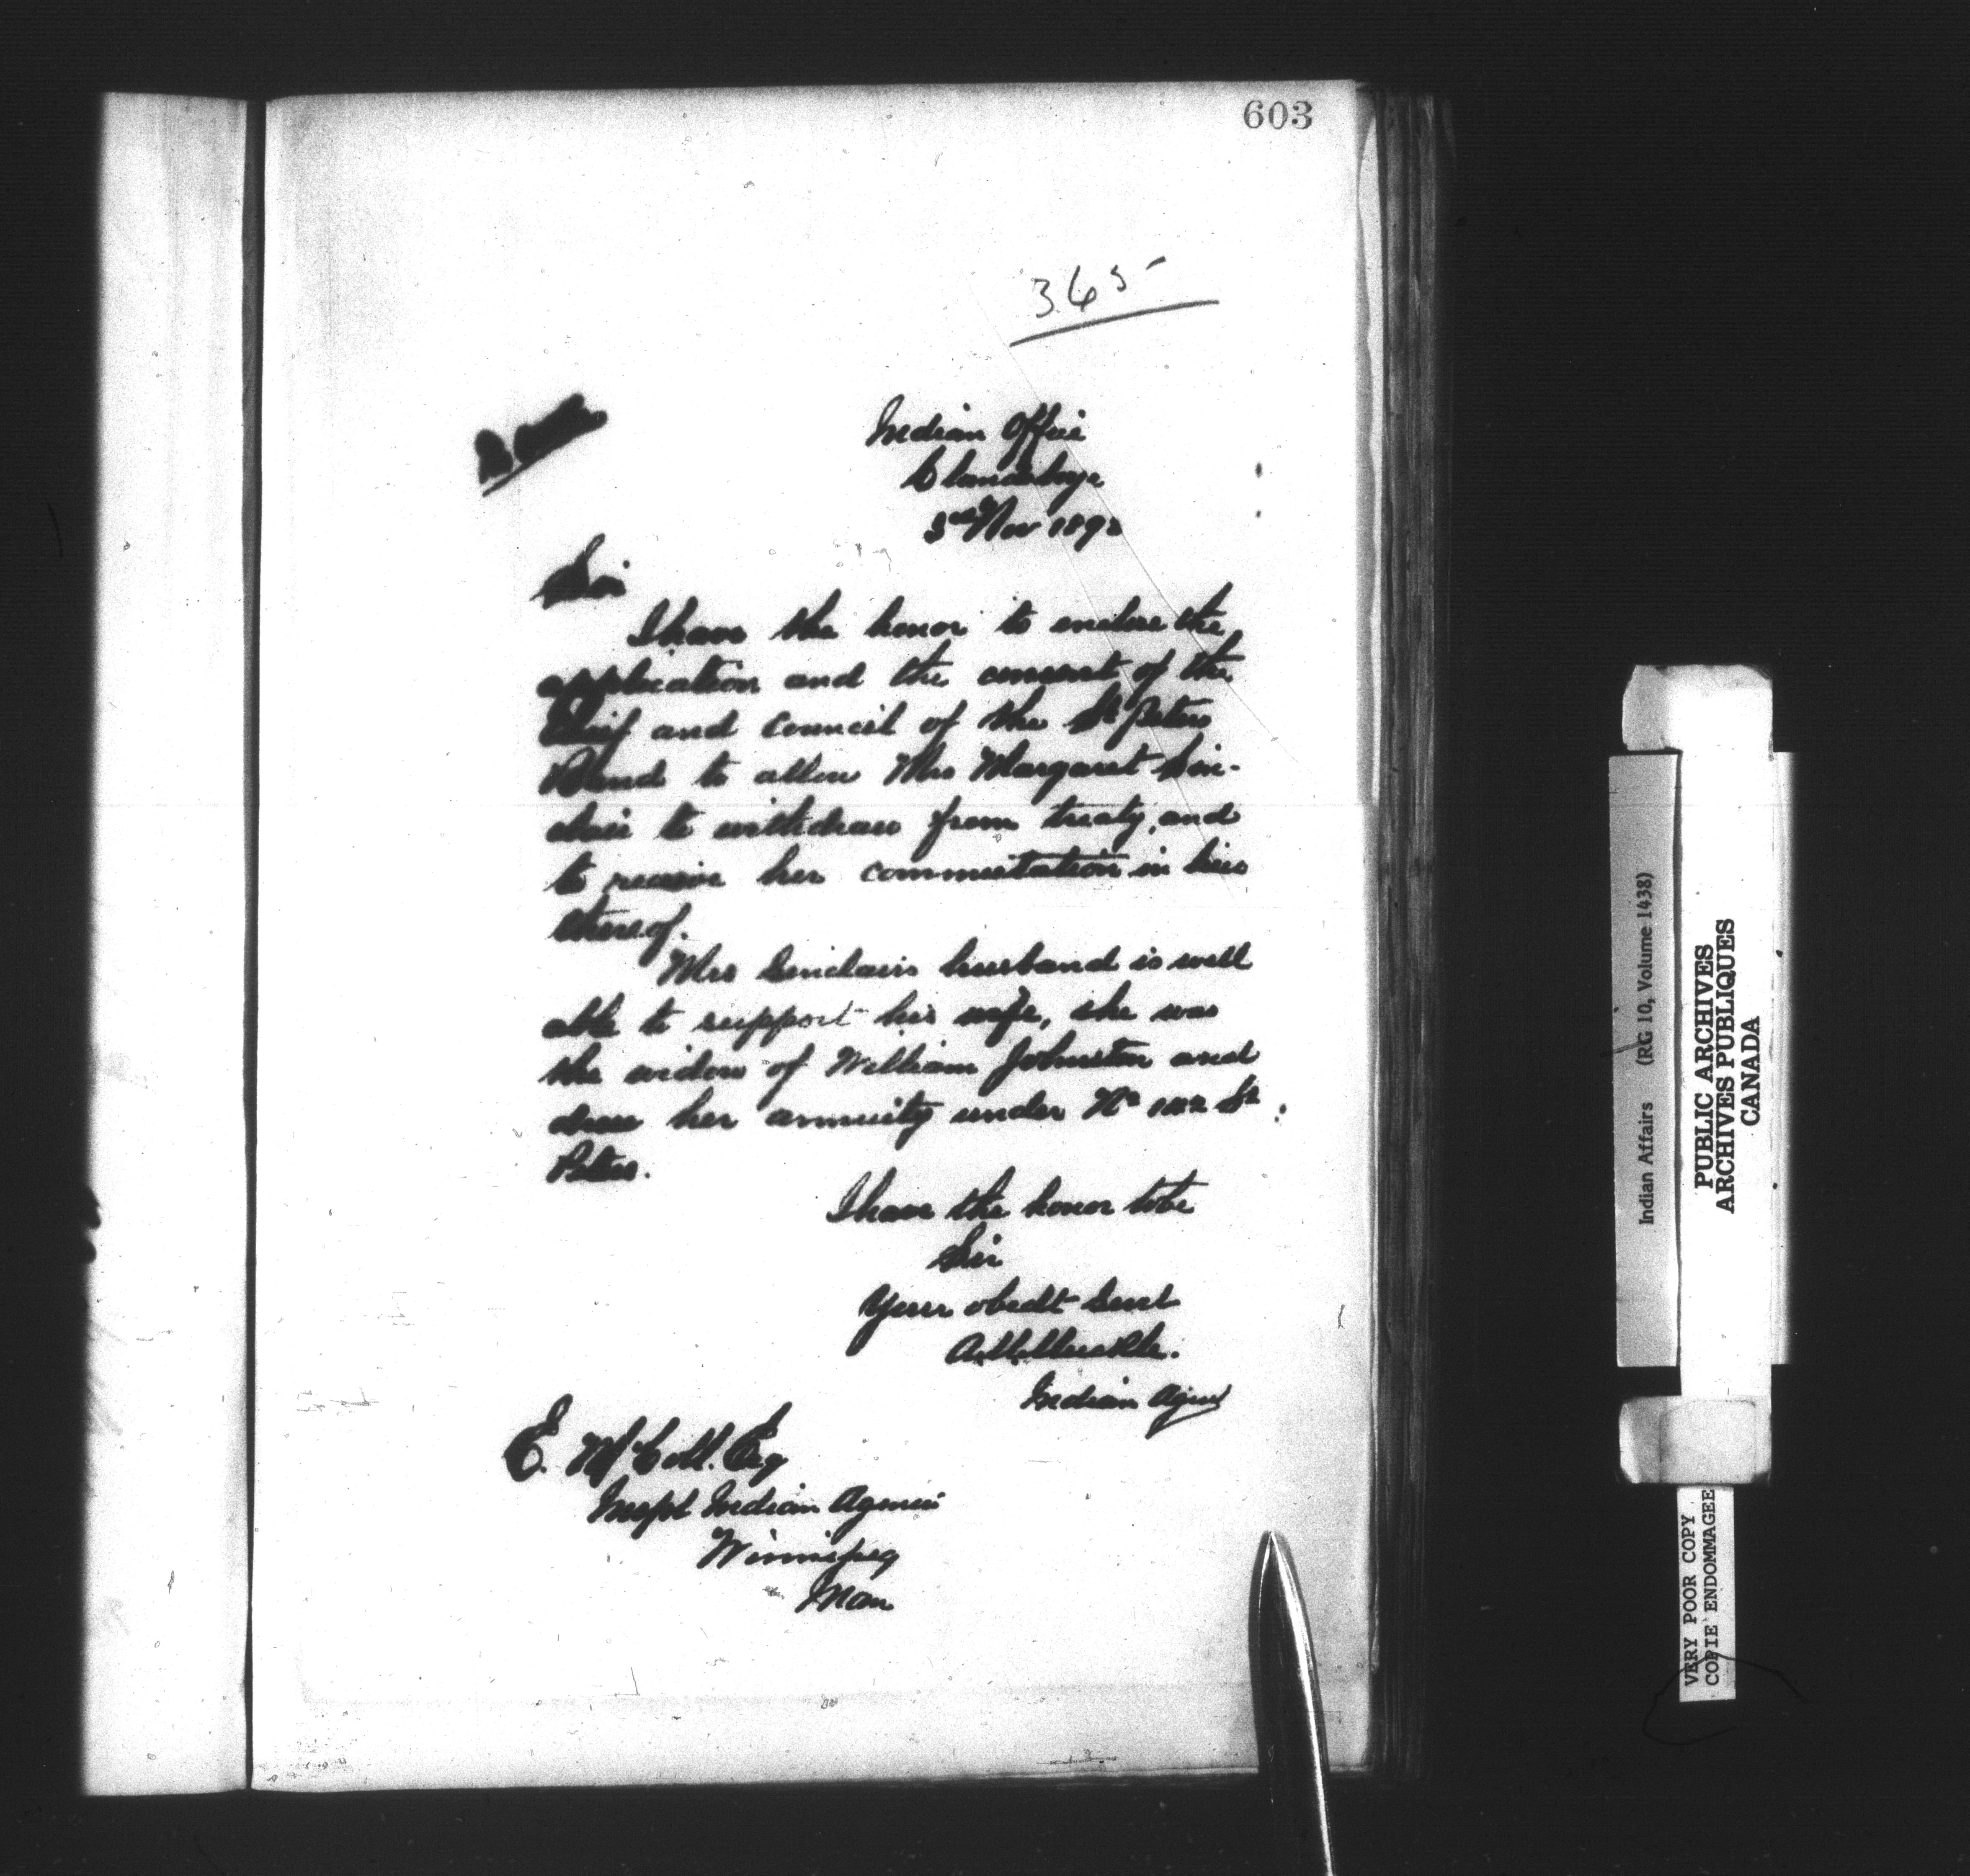 603
365
Indian Office
Clandeboye
3rd Nov 189
Sir
I have the honor to enclose the
application and the consent of the
Chief and Council of the St Peters
Band to allow Mrs Margaret Sin-
clair to withdraw from treaty, and
to receive her commutation in lieu
thereof.
Mrs Sinclairs husband is well
able to support his wife, she was
the widow of William Johnston and
drew her annuity under No St
Peters.
I have the honor to be
Sir
Your obedt Servt
Indian Agent
E. McColl. Esq
Inspt Indian Agencies
Winnipeg
Man
Indian Affairs (RG 10, Volume 1438)
PUBLIC ARCHIVES
ARCHIVES PUBLIQUES
CANADA
VERY POOR COPY
COPIE ENDOMMAGEE